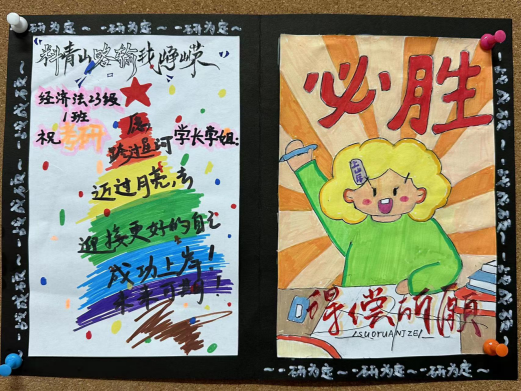 ~研为定~研为定~研为定~
"料青山略输我峥嵘"
经济法23级
1班
祝考研学长学姐:
愿
跨过星河
迈过月亮,去
迎接更好的自己
成功上岸!
未来可期!
必胜
上岸
得偿所愿
/SUOYUANJZE/
~~研为定~研为定~研为定~